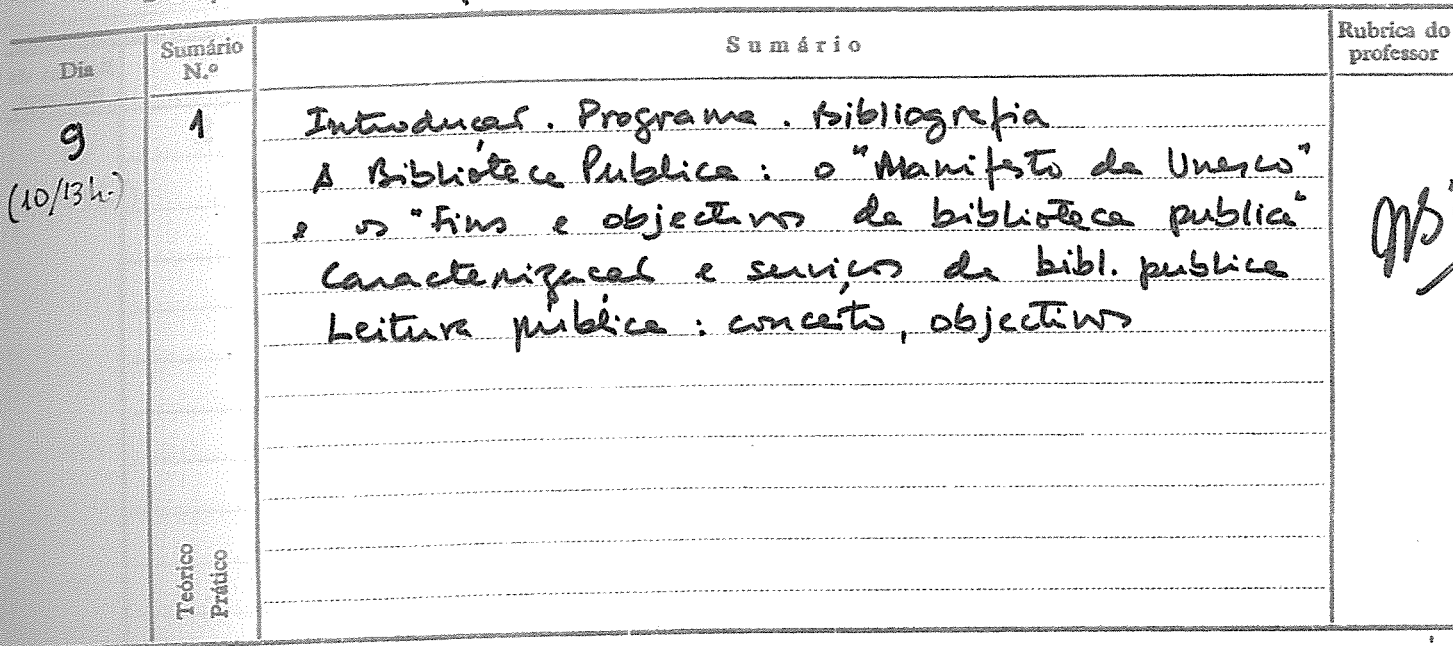 Dia
Sumário N.º
Sumário
Rubrica do professor
9
(10/13 h.)
1
Introducao. Programa. Bibliografia
A Biblioteca Publica: o "Manifesto da Unesco"
e os "Fins e objectivos da biblioteca publica"
Caracterizacao e serviços da bibl. publica
Leitura pública: conceito, objectivos
Teórico
Prático